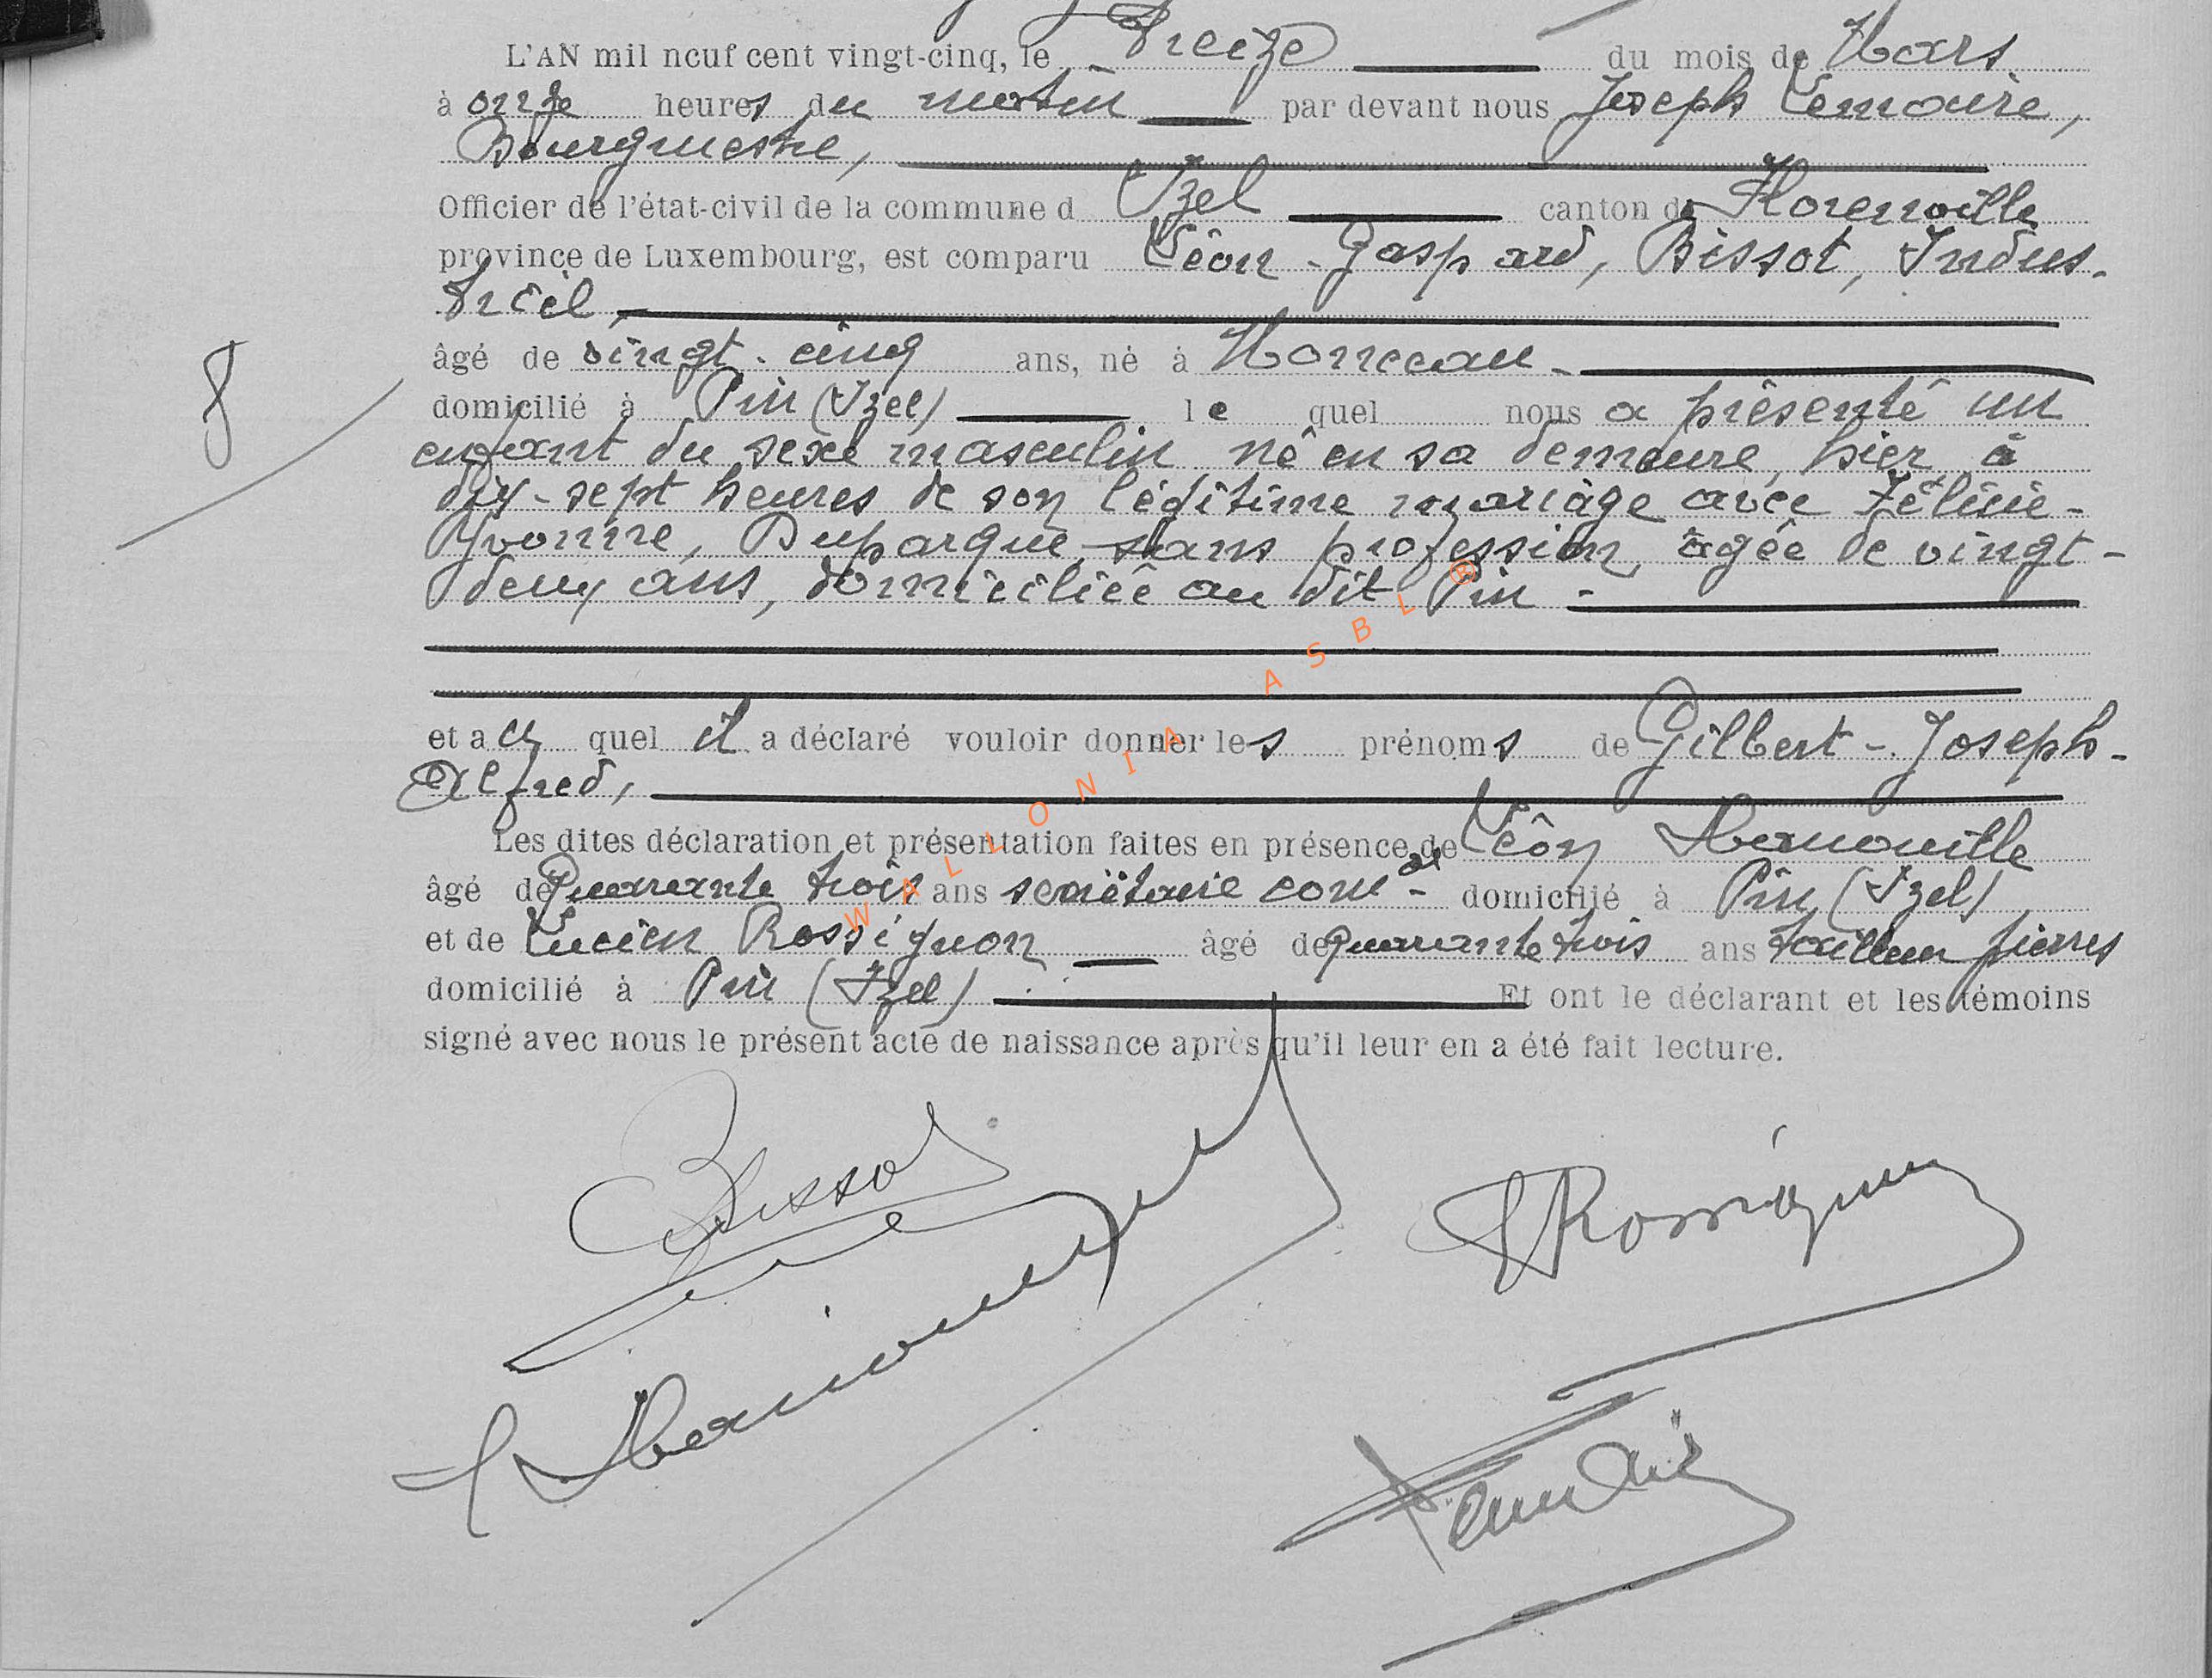 L'AN mil neuf cent vingt-cinq, le Treize du mois de Mars
à onze heures du matin par devant nous Joseph Lemaire,
Bourgmestre,
Officier de l'état-civil de la commune d Izel canton de Florenville
province de Luxembourg, est comparu Léon-Gaspard, Bissot, Indus-
triel,
âgé de vingt-cinq ans, né à Monceau-
domicilié à Pin (Izel) le quel nous a présenté un
8
enfant du sexe masculin né en sa demeure, hier à
dix-sept heures de son légitime mariage avec Félicie-
Yvonne, Duparque sans profession, âgée de vingt-
deux ans, domiciliée au dit Pin -
et au quel il a déclaré vouloir donner les prénoms de Gilbert-Joseph-
Alfred,
Les dites déclaration et présentation faites en présence de Léon
âgé de Quarante trois ans secrétaire com-al domicilié à Pin (Izel)
et de Lucien Rossignon âgé de quarante trois ans tailleur pierres
domicilié à Pin (Izel) Et ont le déclarant et les témoins
signé avec nous le présent acte de naissance après qu'il leur en a été fait lecture.
WALLONIA ASBL ®
Bissot
L Rossignon
Lemaire